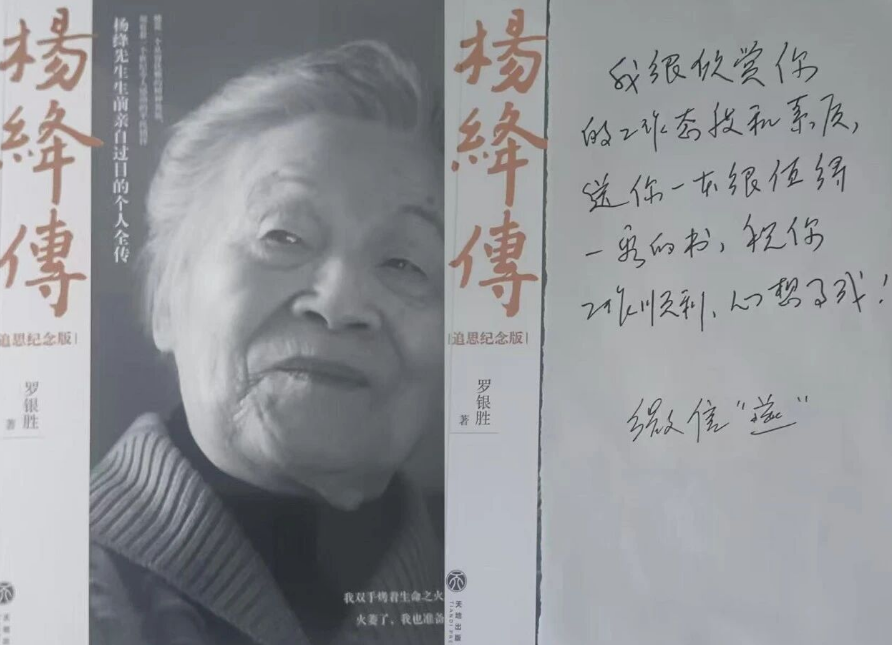 楊絳傳
追思纪念版
罗银胜
著
杨绛先生生前亲自过目的个人全传
我双手烤着生命之火
火萎了，我也准备
楊絳傳
追思纪念版
罗银胜
著
天地出版
TIANDI PRE
我很欣赏你
的工作态度和素质，
送你一本很值得
一看的书，祝你
工作顺利、心想事成！
微信